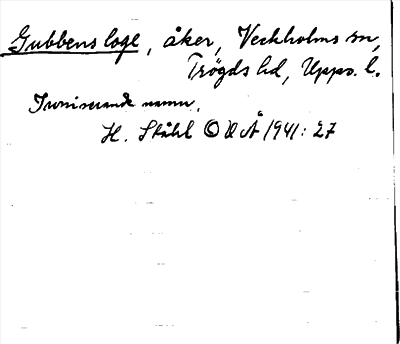 Gubbens loge, åker, Veckholms sn,
Trögds hd, Upps. l.
Ironiserande namn.
H. Ståhl OUÅ 1941: 27